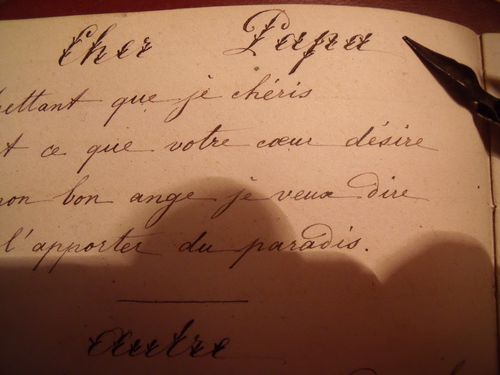 Cher Papa
ettant que je chéris
t ce que votre cœur désire
on bon ange je veux dire
l'apporter du paradis.
autre